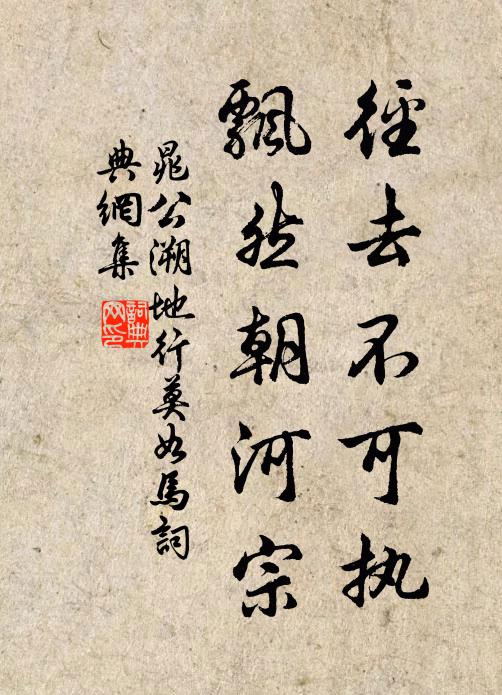 徑去不可执
飄然朝河宗
晁公溯地行莫如馬詞
典網集
詞典網印